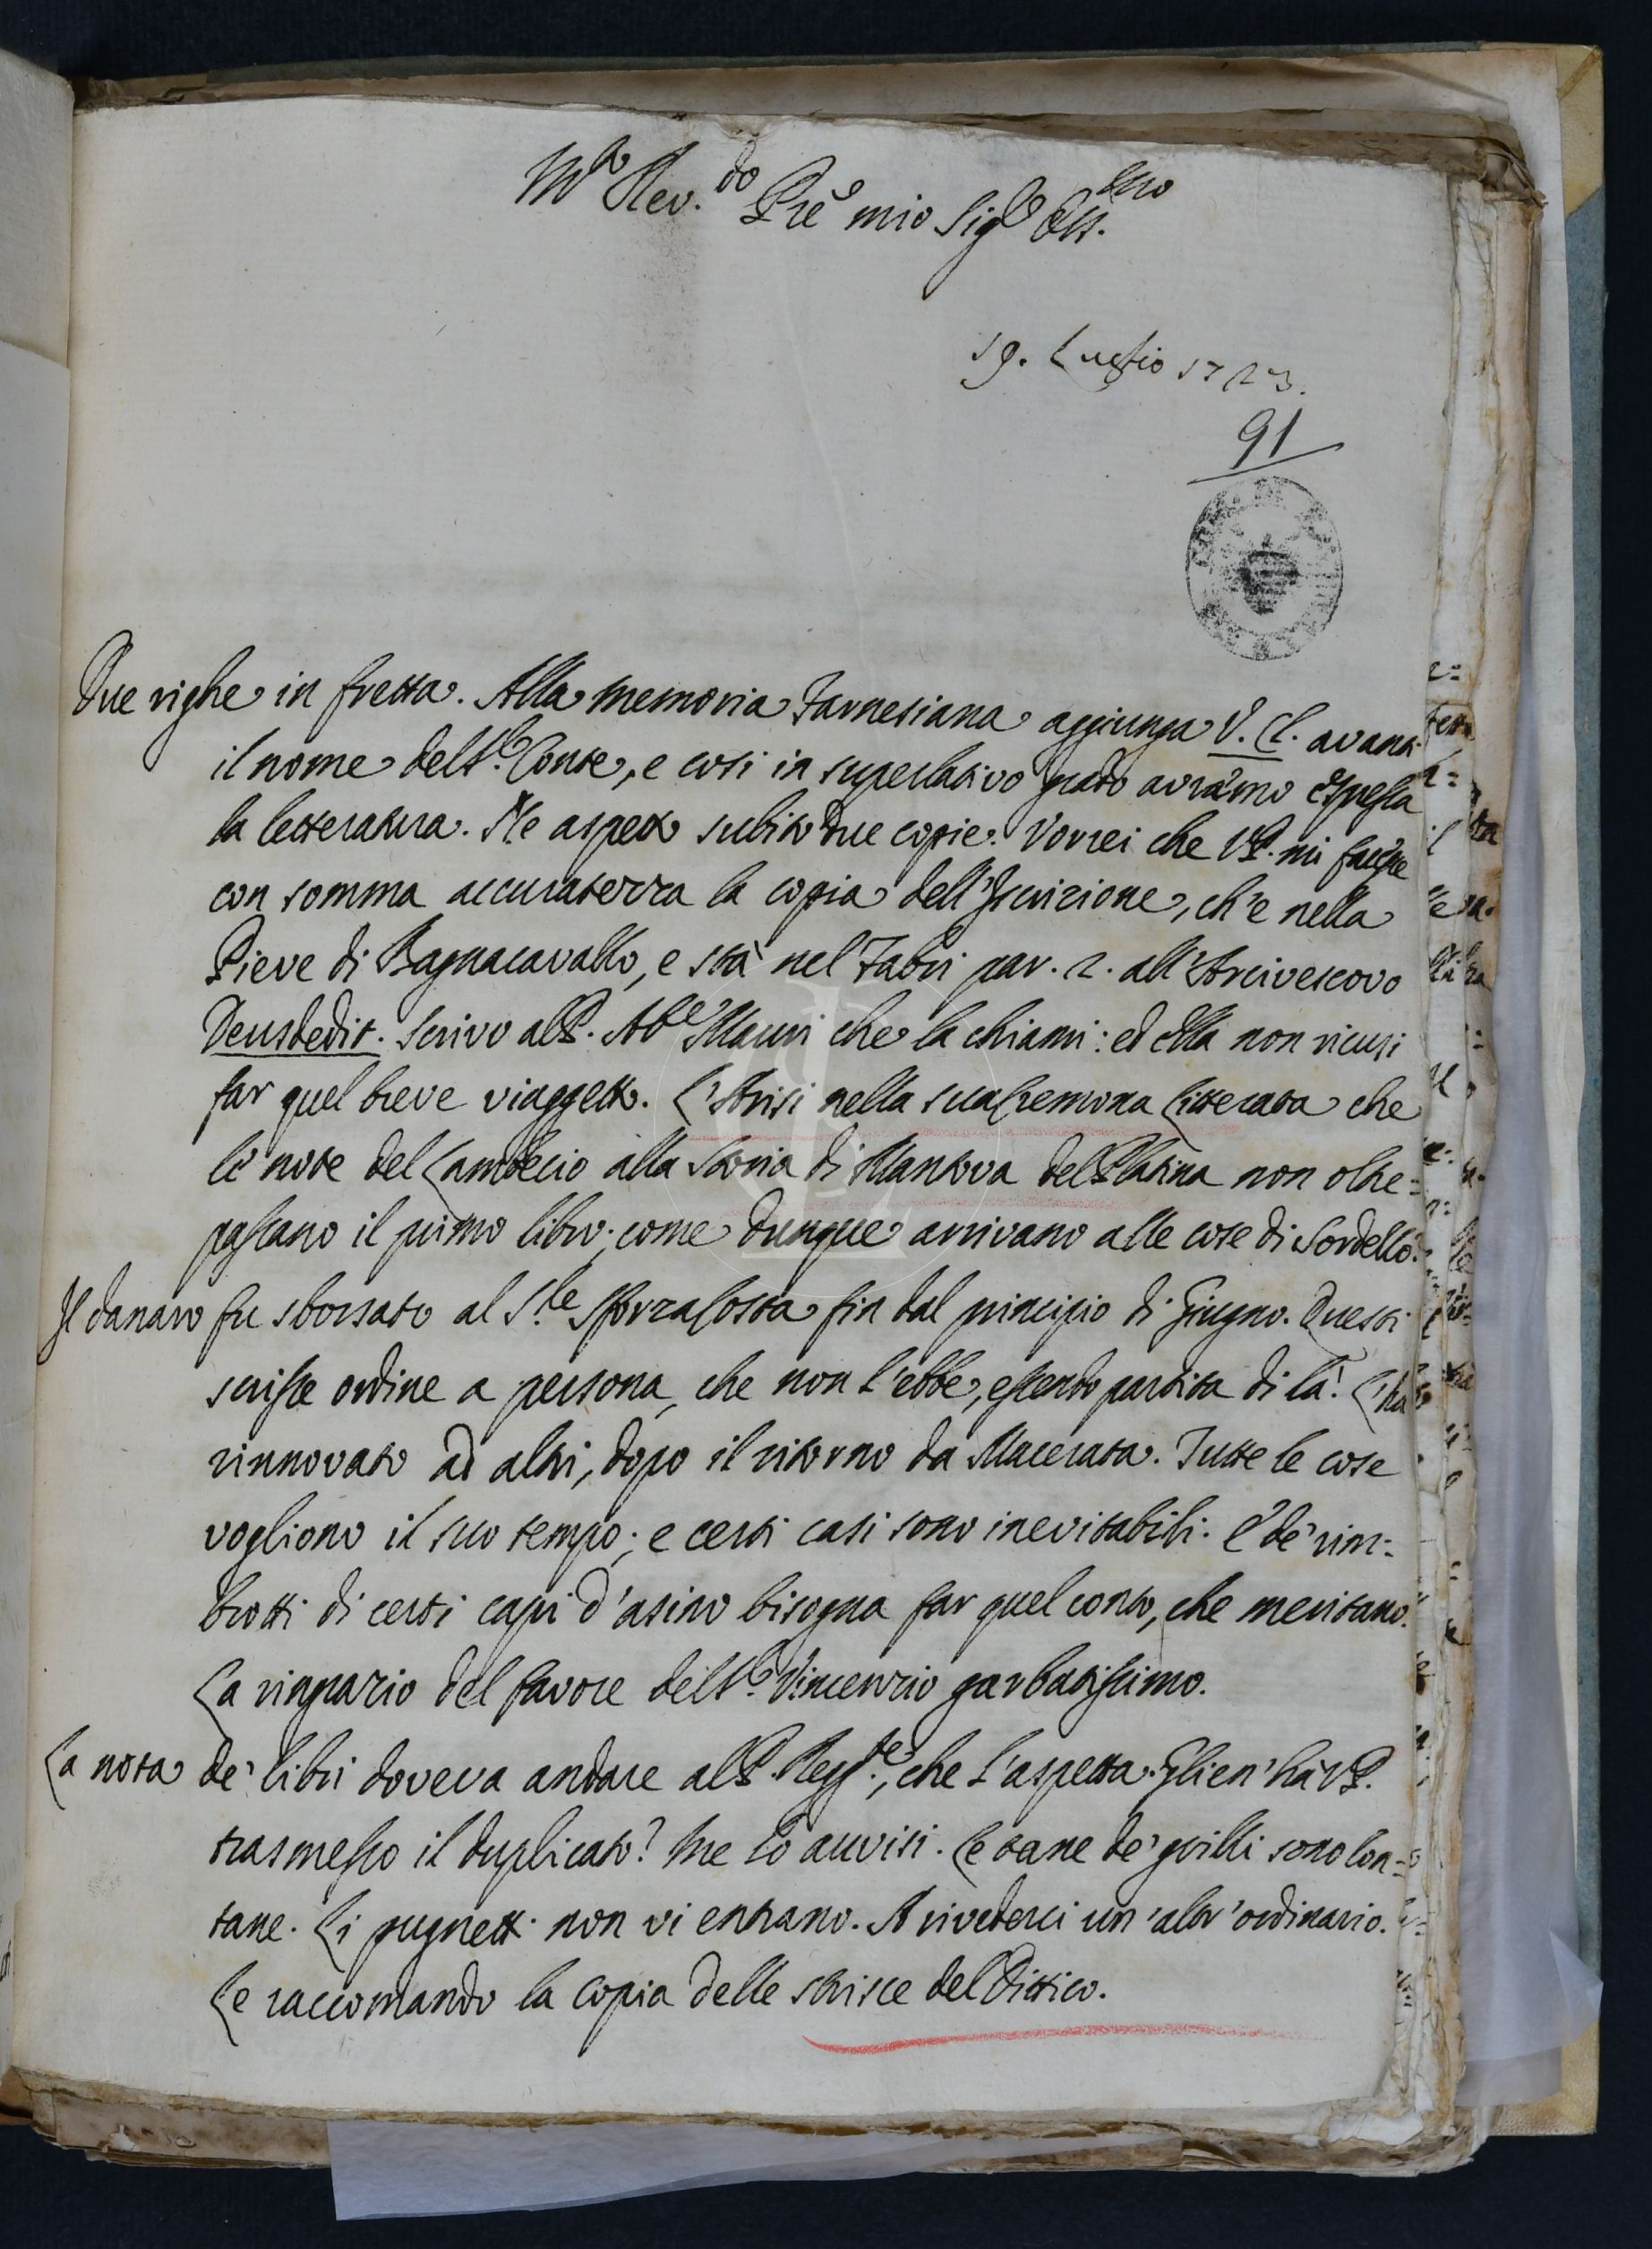 M.o Rev.do Prē mio Sig.e Oss.mo
19. Luglio 1723.
91
Due righe in fretta. Alla memoria Farnesiana aggiunga V. Cl. avanti
il nome del S.r Conte, e così in superlativo grado avrâmo espressa
la letteratura. Ne aspetto subito due copie. Vorrei che V.P. mi facesse
con somma accuratezza la copia dell'Iscrizione, ch'è nella
Pieve di Bagnacavallo, e stà nel Fabri par. 2. all'Arcivescovo
Deusdedit. Scrivo al P. Ab.e Mauri che la chiami: ed ella non ricusi
far quel breve viaggetto. L'Arisi nella sua Cremona Litterata che
le note del Lambecio alla Storia di Mantova del Platina non oltre=
passano il primo libro; come dunque arrivano alle cose di Sordello?
Il danaro fu sborsato al S.re Sforzacosta fin dal principio di Giugno. Questi
scrisse ordine a persona, che non l'ebbe, essendo partita di là. L'hà
rinnovato ad altri, dopo il ritorno da Macerata. Tutte le cose
vogliono il suo tempo; e certi casi sono inevitabili. E de' rim=
brotti di certi capi d'asino bisogna far quel conto, che meritano.
La ringrazio del favore del S.r Vincenzio garbatissimo.
La nota de' libri doveva andare al P. Regg.te, che l'aspetta. Glien'hà V.P.
trasmesso il duplicato? Me lo avvisi. Le tane de' grilli sono lon=
tane. Li pugnetti non vi entrano. A rivederci un'altr'ordinario.
Le raccomando la copia delle strisce del Dittico.